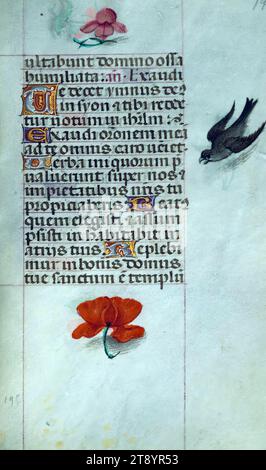 ultabunt domino ossa
humiliata: añ. Exaudi
Te decet ymnus deus
in syon et tibi redde
tur uotum in ihrlm:
Exaudi orationem meam
ad te omnis caro ueniet
Verba iniquorum p
ualuerunt super nos et
impietatibus nrīs tu
propiciaberis Beatus
quem elegisti et assum
psisti inhabitabit in
atriis tuis Reple bi
mur in bonis domus
tue sanctum ē templū
195
alamy
Image ID: 2T8YR53
www.alamy.com